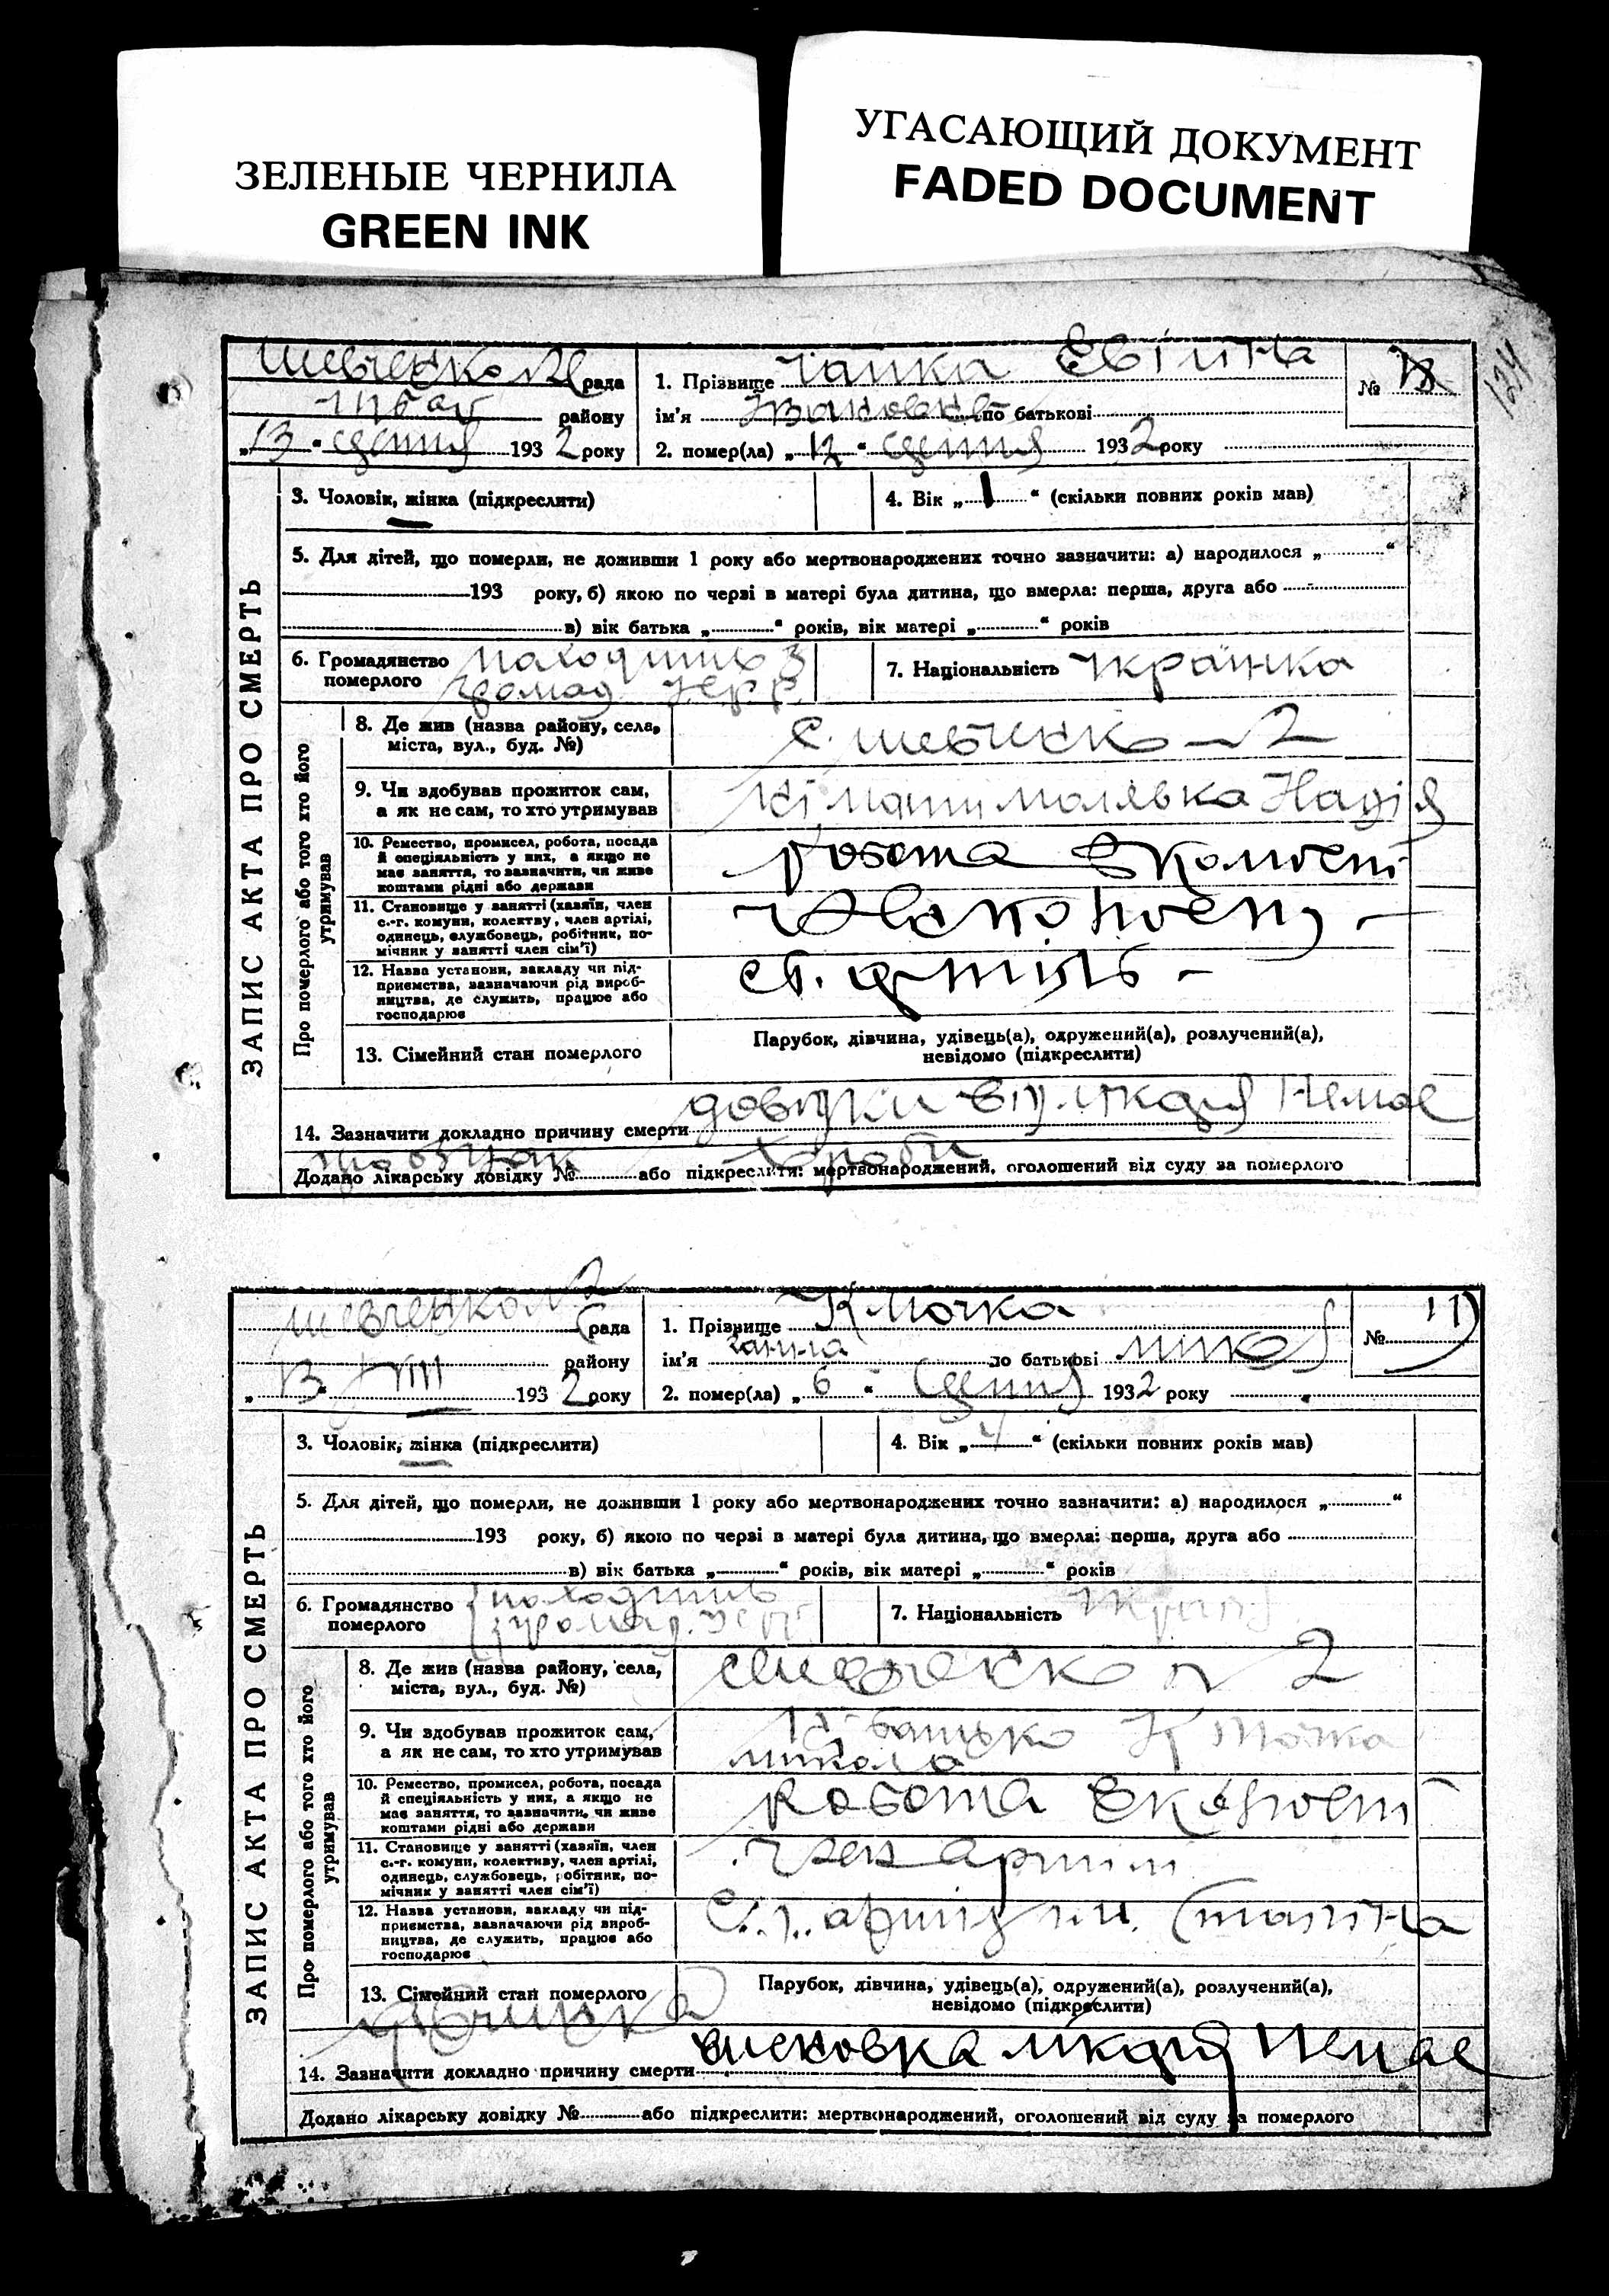 ЗЕЛЕНЫЕ ЧЕРНИЛА
GREEN INK
УГАСАЮЩИЙ ДОКУМЕНТ
FADED DOCUMENT
124
ЗАПИС АКТА ПРО СМЕРТЬ
Шевченко №2 рада
району
„13“ серпня 1932 року
1. Прізвище Чапка Євгіна
ім'я по батькові
2. помер(ла) „12“ серпня 1932 року
№
3. Чоловік, жінка (підкреслити)
4. Вік „1“ (скільки повних років мав)
5. Для дітей, що померли, не доживши 1 року або мертвонароджених точно зазначити: а) народилося „ “
193 року, б) якою по черзі в матері була дитина, що вмерла: перша, друга або
в) вік батька „ “ років, вік матері „ “ років
6. Громадянство померлого
находишь з громад. УСРР
7. Національність украінка
Про померлого або того хто його утримував
8. Де жив (назва району, села, міста, вул., буд. №)
с. Шевченко №2
9. Чи здобував прожиток сам, а як не сам, то хто утримував
Ні мати Малявка Надія
10. Ремество, промисел, робота, посада й спеціяльність у них, а якщо не має заняття, то зазначити, чи живе коштами рідні або держави
робота в колгоспі
11. Становище у занятті (хазяїн, член с.-г. комуни, колектву, член артілі, одинець, службовець, робітник, помічник у занятті член сім'ї)
12. Назва установи, закладу чи підприємства, зазначаючи рід виробництва, де служить, працює або господарює
13. Сімейний стан померлого
Парубок, дівчина, удівець(а), одружений(а), розлучений(а), невідомо (підкреслити)
14. Зазначити докладно причину смерти довідки від лікаря немає
хороби
Додано лікарську довідку № або підкреслити: мертвонароджений, оголошений від суду за померлого
ЗАПИС АКТА ПРО СМЕРТЬ
Шевченко №2 рада
району
„13“ VIII 1932 року
1. Прізвище Клочка
ім'я Ганна по батькові Микол
2. помер(ла) „6“ серпня 1932 року
№ 11
3. Чоловік, жінка (підкреслити)
4. Вік „ “ (скільки повних років мав)
5. Для дітей, що померли, не доживши 1 року або мертвонароджених точно зазначити: а) народилося „ “
193 року, б) якою по черзі в матері була дитина, що вмерла: перша, друга або
в) вік батька „ “ років, вік матері „ “ років
6. Громадянство померлого
находишь з громад. УСРР
7. Національність
Про померлого або того хто його утримував
8. Де жив (назва району, села, міста, вул., буд. №)
Шевченко №2
9. Чи здобував прожиток сам, а як не сам, то хто утримував
Ні батько Клочка
Микола
10. Ремество, промисел, робота, посада й спеціяльність у них, а якщо не має заняття, то зазначити, чи живе коштами рідні або держави
Робота в колгоспі
11. Становище у занятті (хазяїн, член с.-г. комуни, колективу, член артілі, одинець, службовець, робітник, помічник у занятті член сім'ї)
член артили
12. Назва установи, закладу чи підприємства, зазначаючи рід виробництва, де служить, працює або господарює
С.г. артиль им. Сталина
13. Сімейний стан померлого
дівчинка
Парубок, дівчина, удівець(а), одружений(а), розлучений(а), невідомо (підкреслити)
14. Зазначити докладно причину смерти лікаря немає
Додано лікарську довідку № або підкреслити: мертвонароджений, оголошений від суду за померлого